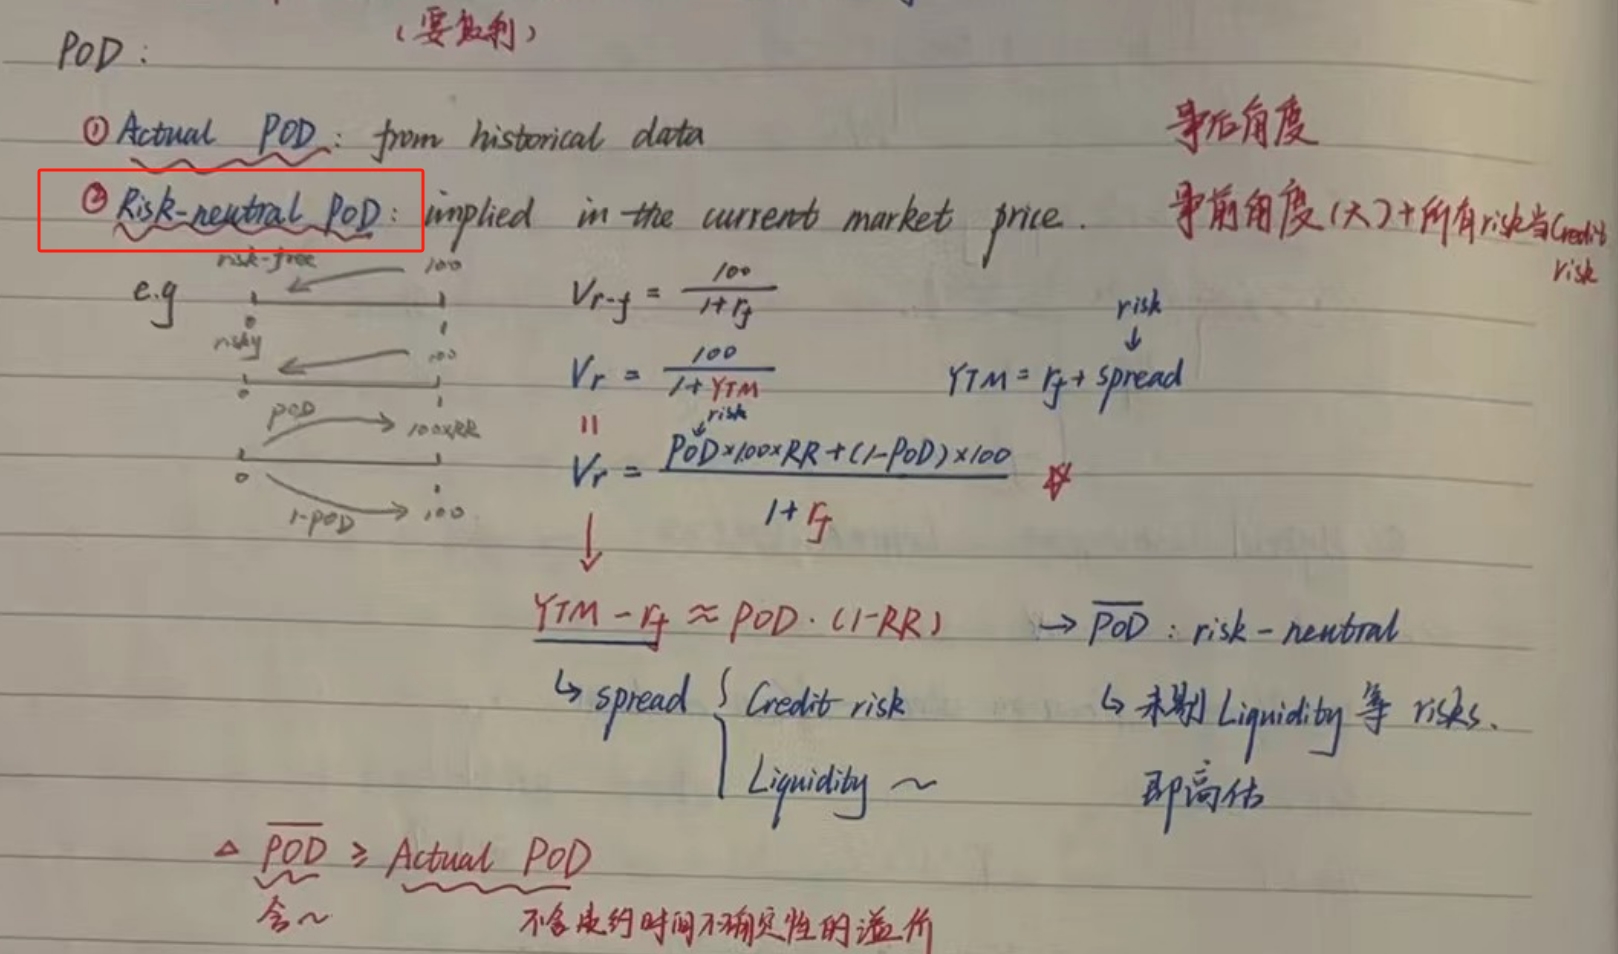 (要复利)
POD :
① Actual POD : from historical data 事后角度
② Risk-neutral POD : implied in the current market price. 事前角度(大)+所有risk当Credit risk
e.g risk-free 100 0
V_{r-f} = 100 / (1+r_f)
risky 100 0
V_r = 100 / (1+YTM)
risk ↓ YTM = r_f + spread
POD 100×RR 0 1-POD 100
||
risk ↓ V_r = (POD×100×RR+(1-POD)×100) / (1+r_f) ☆
↓
YTM - r_f ≈ POD · (1-RR) → \overline{POD} : risk-neutral
↳ spread { Credit risk ↳ 未剔 Liquidity 等 risks.
Liquidity ~ 即高估
△ \overline{POD} ≥ Actual POD
含~ 不含违约时间不确定性的溢价